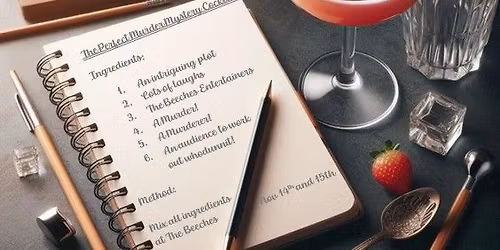 The Perfect Murder Mystery Cocktail
Ingredients:
1. An intriguing plot
2. Lots of laughs
3. The Beeches Entertainers
4. A Murder!
5. A Murderer!
6. An audience to work
out whodunnit!
Method:
Mix all ingredients
at The Beeches
Nov. 14th and 15th